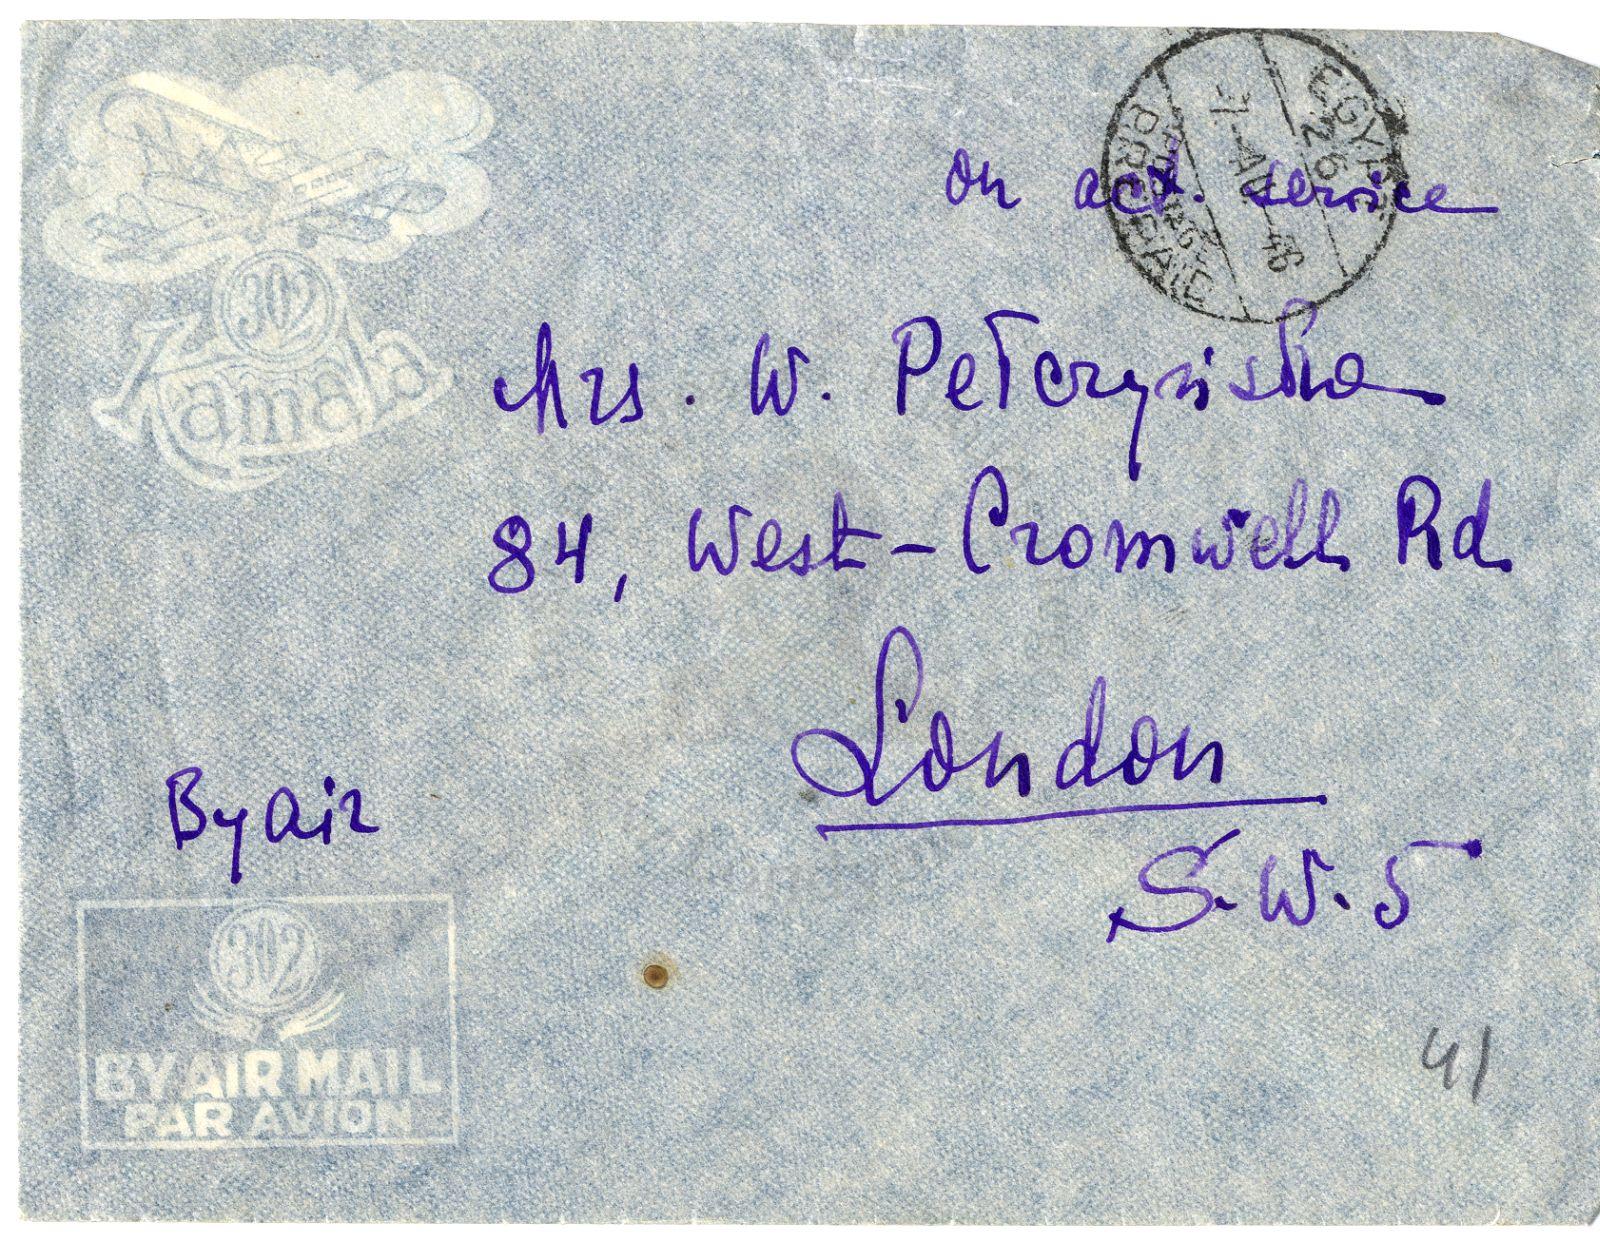 302
Kamah
EGYPT 26
-1 AU 46
PREPAID
on act. service
Mrs. W. Pełczyńska
84, West-Cromwell Rd.
London
S.W.5
By air
302
BY AIR MAIL
PAR AVION
41